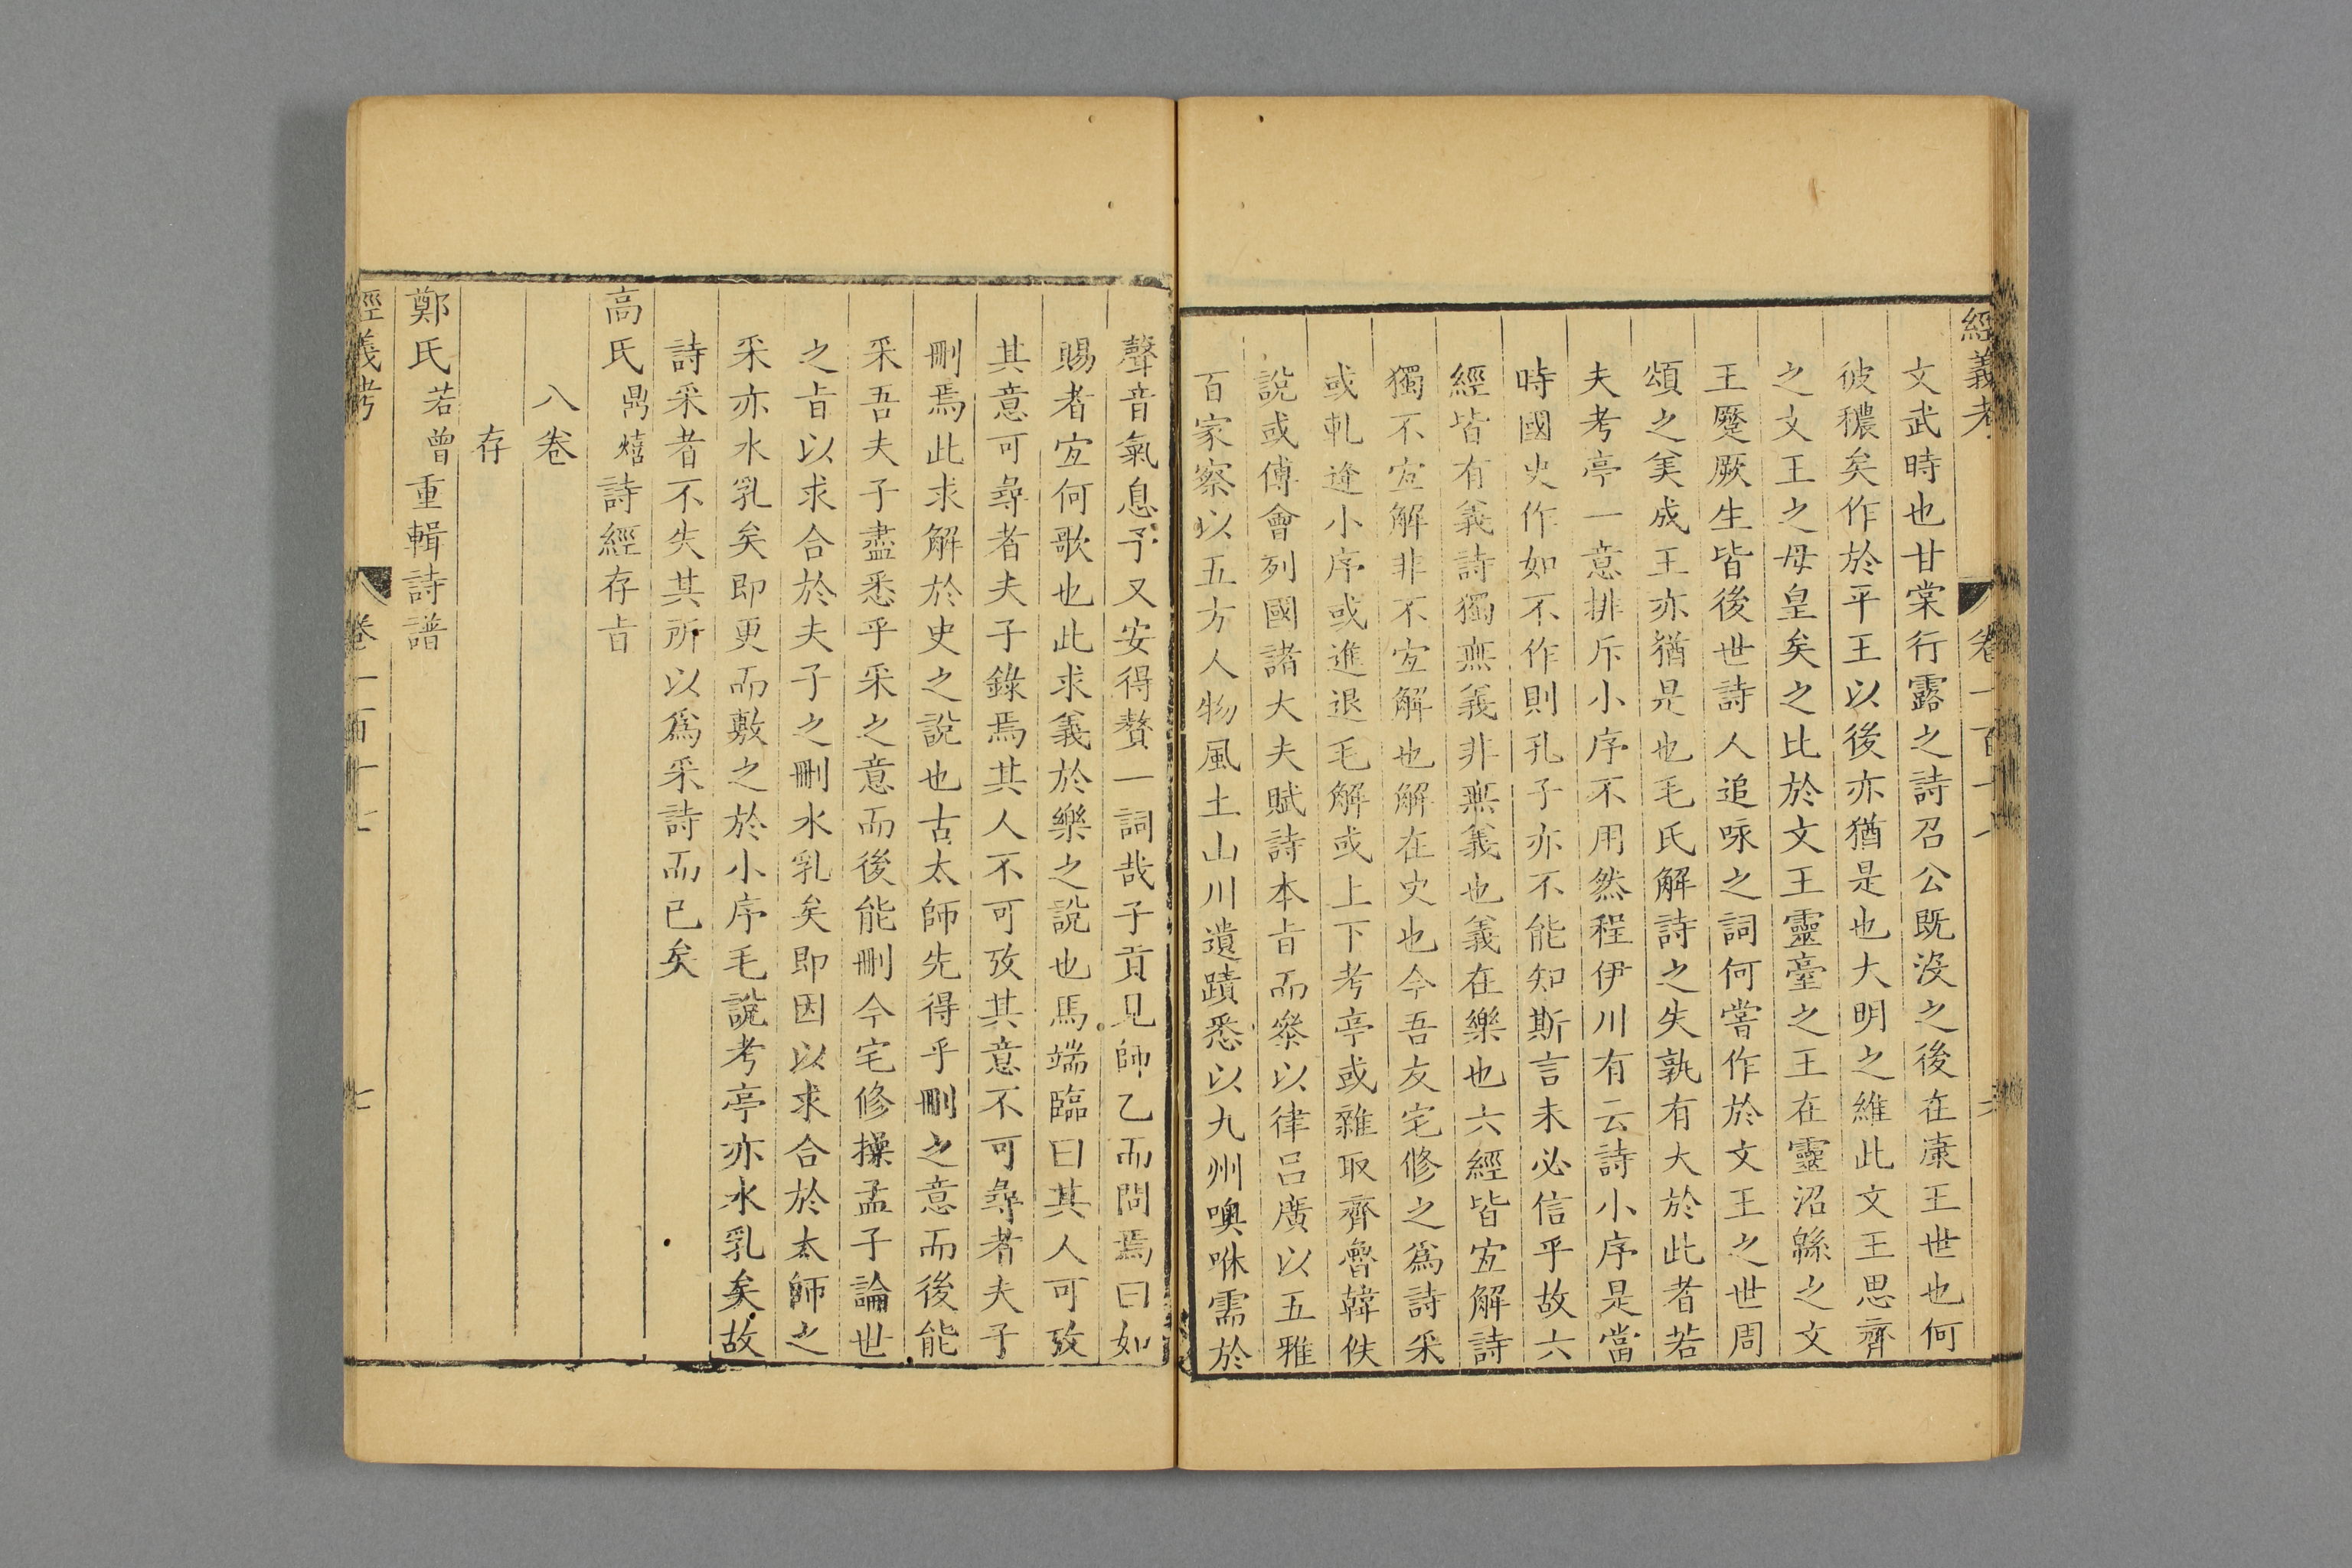 經義考 卷一百十七 六
文武時也甘棠行露之詩召公既沒之後在康王世也何
彼穠矣作於平王以後亦猶是也大明之維此文王思齊
之文王之母皇矣之比於文王靈臺之王在靈沼緜之文
王蹷厥生皆後世詩人追咏之詞何嘗作於文王之世周
頌之美成王亦猶是也毛氏解詩之失孰有大於此者若
夫考亭一意排斥小序不用然程伊川有云詩小序是當
時國史作如不作則孔子亦不能知斯言未必信乎故六
經皆有義詩獨無義非無義也義在樂也六經皆宜解詩
獨不宜解非不宜解也解在史也今吾友宅修之爲詩采
或軋逄小序或進退毛解或上下考亭或雜取齊魯韓佚
說或傅會列國諸大夫賦詩本㫖而叅以律呂廣以五雅
百家察以五方人物風土山川遺蹟悉以九州噢咻需於
聲音氣息予又安得贅一詞哉子貢見師乙而問焉曰如
賜者宜何歌也此求義於樂之說也馬端臨曰其人可攷
其意可尋者夫子錄焉其人不可攷其意不可尋者夫子
刪焉此求解於史之說也古太師先得乎刪之意而後能
采吾夫子盡悉乎采之意而後能刪今宅修操孟子論世
之㫖以求合於夫子之刪水乳矣即因以求合於太師之
采亦水乳矣即更而敷之於小序毛說考亭亦水乳矣故
詩采者不失其所以爲采詩而已矣
高氏鼎熺詩經存㫖
八卷
存
鄭氏若曾重輯詩譜
經義考 卷一百十七 七